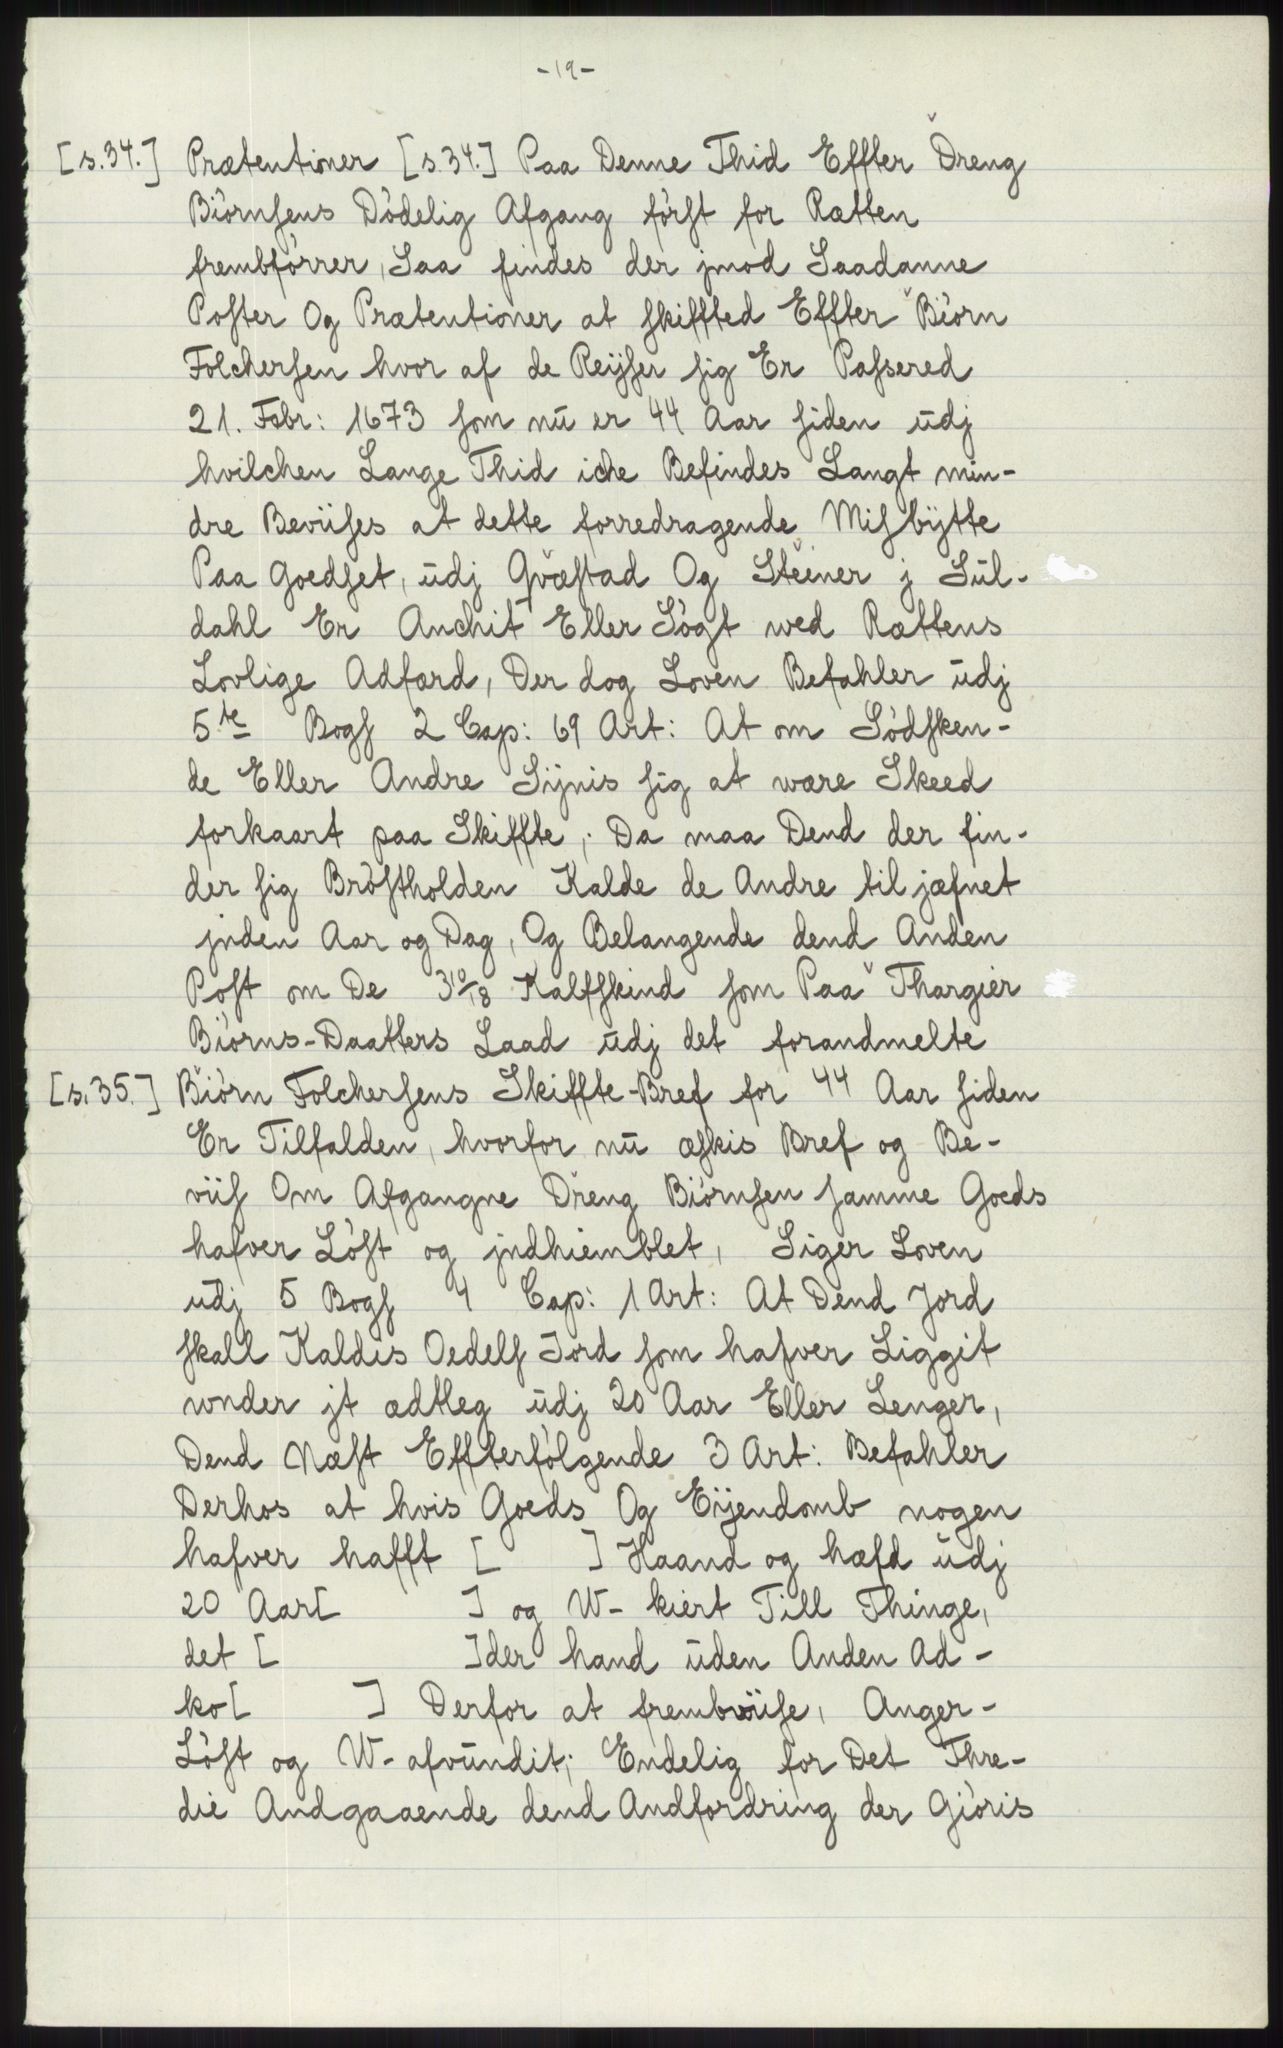 -19-
[s.34.] Prætentioner [s.34.] Paa Denne Thid Effter Dreng
Biörnsens Dödelig Afgang först for Rætten
frembförrer, Saa findes der jmod Saadanne
Poster Og Prætentioner at skiffted Effter Biörn
Folchersen hvor af de Reÿser sig Er Passered
21. Febr: 1673 som nū er 44 Aar siden ūdj
hvilchen Lange Thid iche Befindes Langt min-
dre Beviises at dette forredragende Misbÿtte
Paa Goedset, ūdj Qvæstad Og Steiner j Sūl-
dahl Er Anchit Eller Sögt wed Rættens
Lovlige Adfærd, Der dog Loven Befahler ūdj
5te Bogs 2 Cap: 69 Art: At om Södsken-
de Eller Andre Sÿnis sig at være Skeed
forkaart paa Skiffte, Da maa Dend der fin-
der sig Bröstholden Kalde de Andre til jæfnet
jnden Aar og Dag, Og Belangende dend Anden
Post om De 3 10/18 Kalfskind som Paa Thargier
Biörns-Daatters Laad ūdj det forandmelte
[s.35.] Biörn Folchersens Skiffte-Bref for 44 Aar siden
Er Tilfalden, hvorfor nū æskis Bref og Be-
viis Om Afgangne Dreng Biörnsen samme Goeds
hafver Löst og jndhiemblet, Siger Loven
ūdj 5 Bogs 4 Cap: 1 Art: At Dend Jord
skall Kaldis Oedels Jord som hafver Liggit
wnder jt ædtleg ūdj 20 Aar Eller Lenger,
Dend Næst Effterfölgende 3 Art: Befahler
Derhos at hvis Goeds Og Eÿendomb nogen
hafver hafft [ ] Haand og hæfd ūdj
20 Aar[ ] og W- kiert Till Thinge,
det [ ]der hand ūden Anden Ad-
ko[ ] Derfor at frembviise, Anger-
Löst og W- afvūndit; Endelig for Det Thre-
die Andgaaende dend Andfordring der Giöris